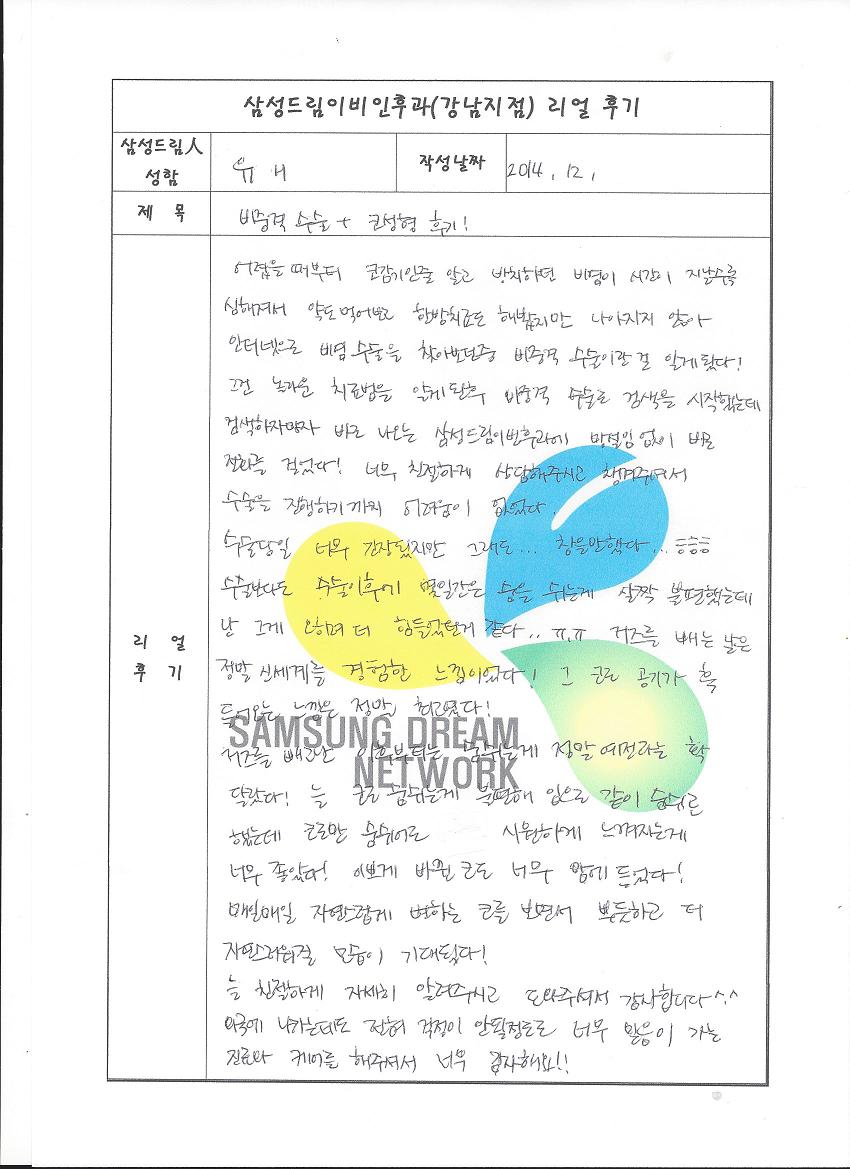 삼성드림이비인후과(강남지점) 리얼 후기
삼성드림人
성함
유 ㅐ
작성날짜
2014. 12.
제 목
비중격 수술 + 코성형 후기!
리 얼
후 기
어렸을 때부터 코감기인줄 알고 방치하던 비염이 시간이 지날수록
심해져서 약도 먹어보고 한방치료도 해봤지만 나아지지 않아
인터넷으로 비염 수술을 찾아보던중 비중격 수술이란 걸 알게됐다!
그런 놀라운 치료법을 알게된후 비중격 수술로 검색을 시작했는데
검색하자마자 바로 나오는 삼성드림이비인후과에 망설임 없이 바로
전화를 걸었다! 너무 친절하게 상담해주시고 챙겨주셔서
수술을 진행하기까지 어려움이 없었다.
수술당일 너무 긴장됬지만 그래도... 참을만했다... ㅎㅎㅎ
수술보다도 수술이후에 몇일간은 숨을 쉬는게 살짝 불편했는데
난 그게 오히려 더 힘들었던거 같다.. ㅠ.ㅠ 거즈를 빼는 날은
정말 신세계를 경험한 느낌이었다! 그 코로 공기가 훅
들어오는 느낌은 정말 최고였다!
SAMSUNG DREAM
NETWORK
거즈를 빼고난 이후부터는 숨쉬는게 정말 예전과는 확
달랐다! 늘 코로 숨쉬는게 불편해 입으로 같이 숨쉬곤
했는데 코로만 숨쉬어도 시원하게 느껴지는게
너무 좋았다! 이쁘게 바뀐 코도 너무 맘에 들었다!
매일매일 자연스럽게 변하는 코를 보면서 뿌듯하고 더
자연스러워질 모습이 기대됬다!
늘 친절하게 자세히 알려주시고 도와주셔서 감사합니다^.^
외국에 나가는데도 전혀 걱정이 안될정도로 너무 믿음이 가는
진료와 케어를 해주셔서 너무 감사해요!!